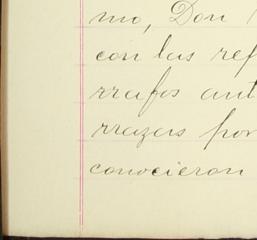 mo, Don
con las ref
rrafos ant
rrazas por
conocieron